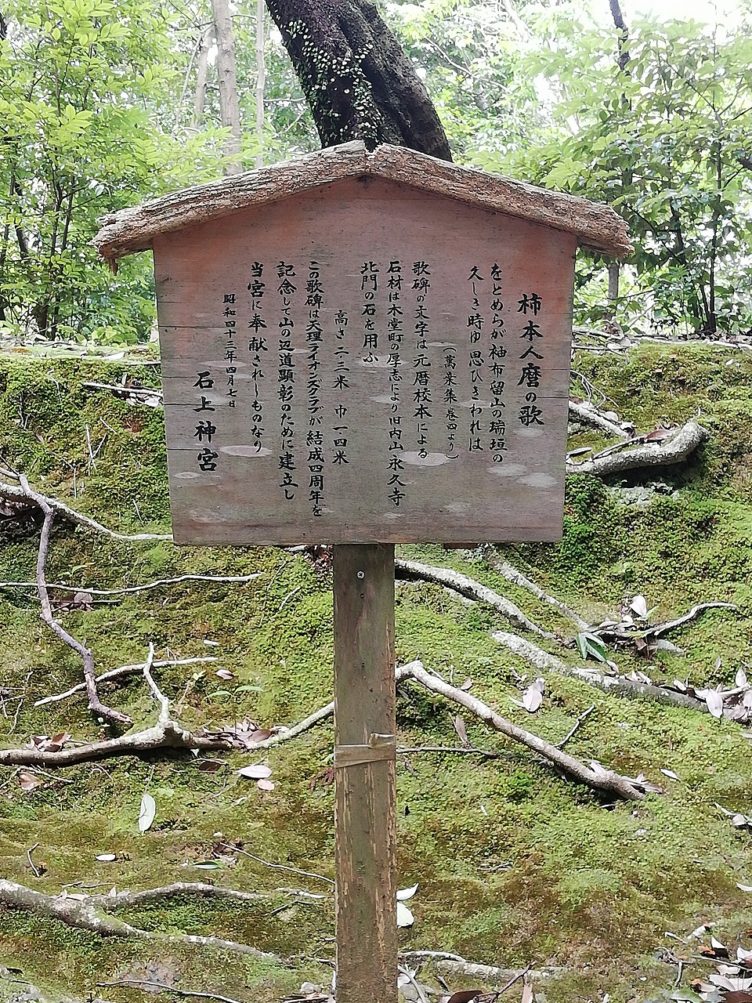 柿本人麿の歌
をとめらが袖布留山の瑞垣の
久しき時ゆ思ひきわれは
（萬葉集 巻四より）
歌碑の文字は元暦校本による
石材は木堂町の厚志により旧内山永久寺の
北門の石を用ふ
高さ二・二米 巾一四米
この歌碑は天理ライオンズクラブが結成四周年を
記念して山の辺道顕彰のために建立し
当宮に奉献されしものなり
昭和四十三年四月七日
石上神宮